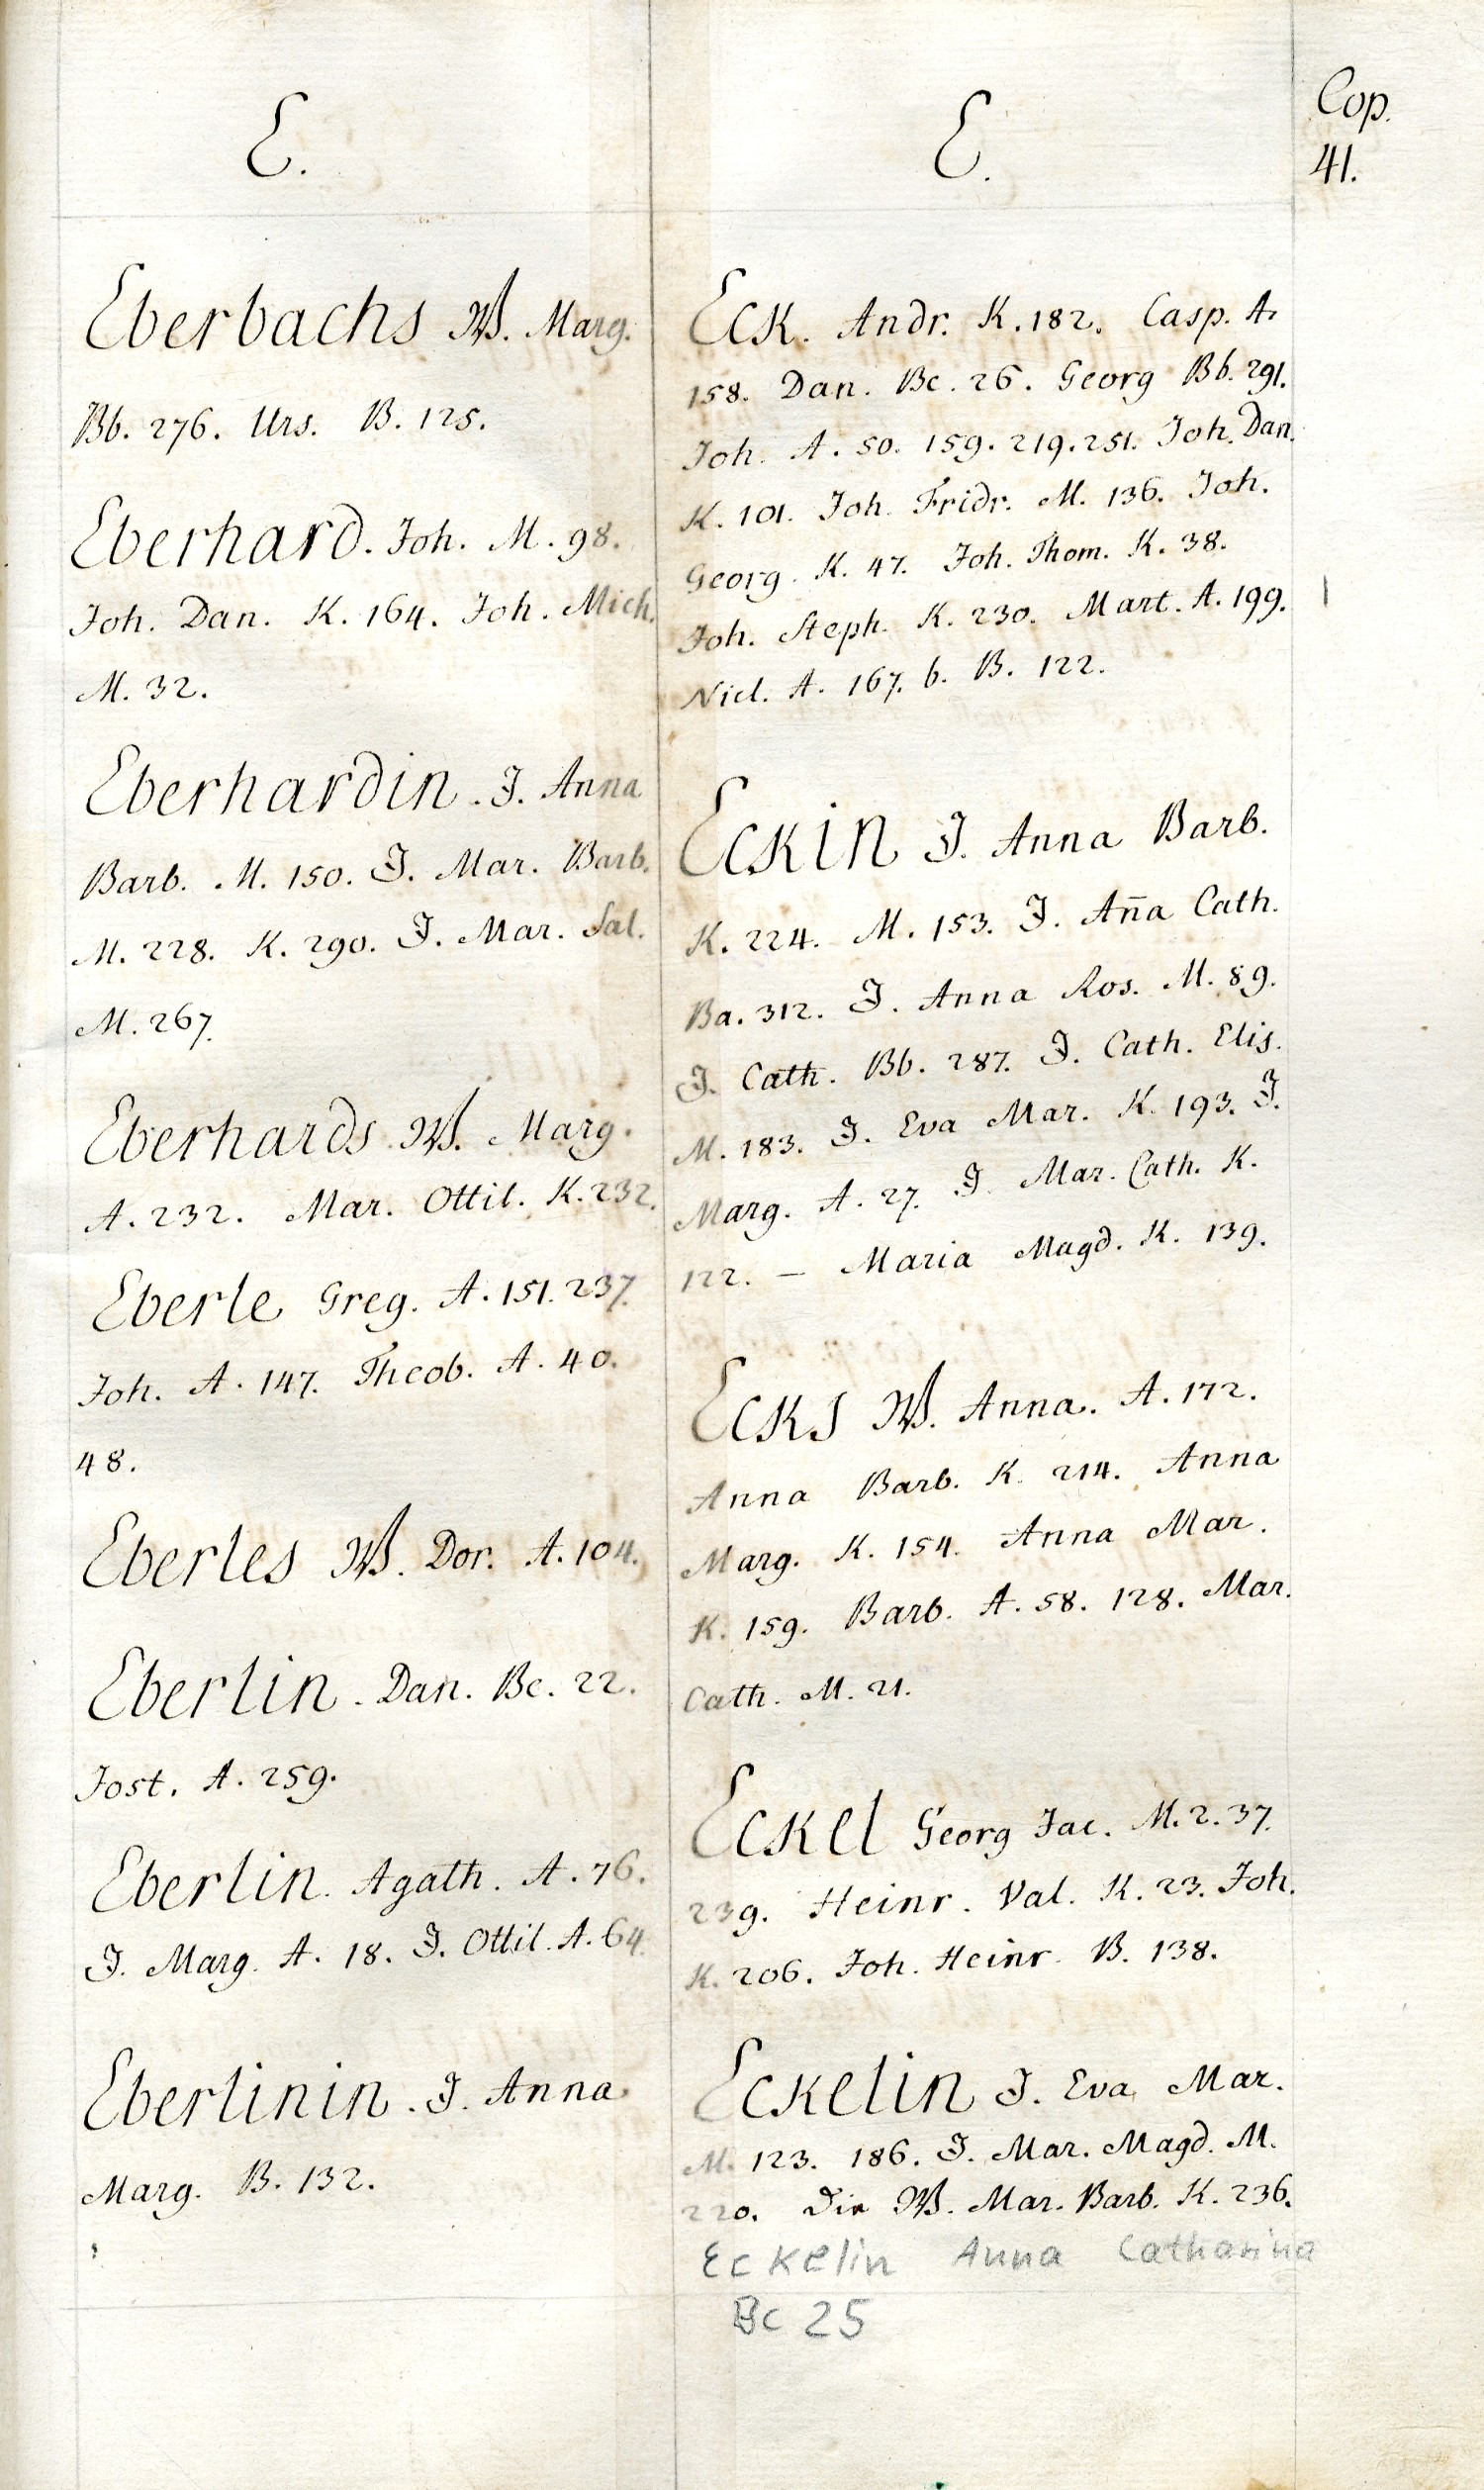 E.
Eberbachs W. Marg.
Bb. 276. Urs. B. 125.
Eberhard. Joh. M. 98.
Joh. Dan. K. 164. Joh. Mich.
M. 32.
Eberhardin. J. Anna
Barb. M. 150. J. Mar. Barb.
M. 228. K. 290. J. Mar. Sal.
M. 267.
Eberhards W. Marg.
A. 232. Mar. Ottil. K. 232.
Eberle Greg. A. 151. 237.
Joh. A. 147. Theob. A. 40.
48.
Eberles W. Dor. A. 104.
Eberlin. Dan. Bc. 22.
Jost. A. 259.
Eberlin. Agath. A. 76.
J. Marg. A. 18. J. Ottil. A. 64.
Eberlinin. J. Anna
Marg. B. 132.
E.
Eck. Andr. K. 182. Casp. A.
158. Dan. Bc. 26. Georg Bb. 291.
Joh. A. 50. 159. 219. 251. Joh. Dan.
K. 101. Joh. Fridr. M. 136. Joh.
Georg. K. 47. Joh. Thom. K. 38.
Joh. Steph. K. 230. Mart. A. 199.
Nicl. A. 167. b. B. 122.
Eckin J. Anna Barb.
K. 224. M. 153. J. Aña Cath.
Ba. 312. J. Anna Ros. M. 89.
J. Cath. Bb. 287. J. Cath. Elis.
M. 183. J. Eva Mar. K. 193. J.
Marg. A. 27. J. Mar. Cath. K.
122. — Maria Magd. K. 139.
Ecks W. Anna. A. 172.
Anna Barb. K. 214. Anna
Marg. K. 154. Anna Mar.
K. 159. Barb. A. 58. 128. Mar.
Cath. M. 21.
Eckel Georg Jac. M. 2. 37.
239. Heinr. Val. K. 23. Joh.
K. 206. Joh. Heinr. B. 138.
Eckelin J. Eva Mar.
M. 123. 186. J. Mar. Magd. M.
220. Die W. Mar. Barb. K. 236.
Eckelin Anna Catharina
Bc 25
Cop.
41.